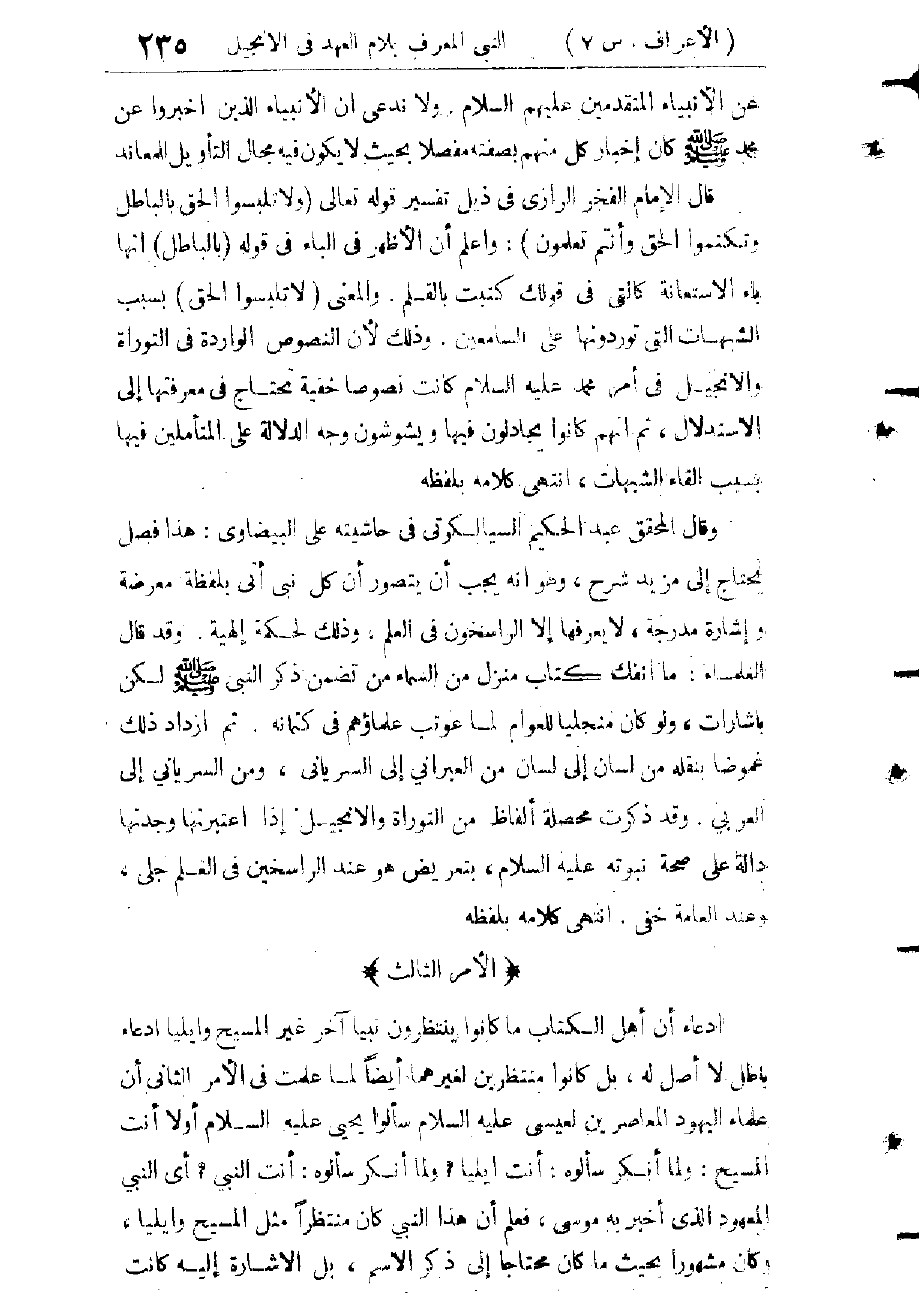 ( الأعراف . س ٧ ) النبي المعرف بلام العهد فى الانجيل ٢٣٥
عن الأنبياء المتقدمين عليهم السلام . ولا ندعى ان الأنبياء الذين اخبروا عن
محمد ﷺ كان إخبار كل منهم بصفته مفصلا بحيث لا يكون فيه مجال التأويل للمعاند
قال الإمام الفخر الرازى فى ذيل تفسير قوله تعالى (ولا تلبسوا الحق بالباطل
وتكتموا الحق وأنتم تعلمون ) : واعلم أن الأظهر فى الباء فى قوله (بالباطل) انها
باء الاستعانة كالتى فى قولك كتبت بالقلم . والمعنى ( لا تلبسوا الحق ) بسبب
الشبهات التى توردونها على السامعين . وذلك لأن النصوص الواردة فى التوراة
والانجيل فى أمر محمد عليه السلام كانت نصوصا خفية تحتاج فى معرفتها إلى
الاستدلال ، ثم انهم كانوا يجادلون فيها ويشوشون وجه الدلالة على المتأملين فيها
بسبب القاء الشبهات ، انتهى كلامه بلفظه
وقال المحقق عبد الحكيم السيالكوتى فى حاشيته على البيضاوى : هذا فصل
يحتاج إلى مزيد شرح ، وهو انه يجب أن يتصور أن كل نبى أتى بلفظة معرضة
و إشارة مدرجة ، لا يعرفها إلا الراسخون فى العلم ، وذلك لحكمة إلهية . وقد قال
العلماء : ما انفك كتاب منزل من السماء من تضمن ذكر النبى ﷺ لكن
باشارات ، ولو كان منجليا للعوام لما عوتب علماؤهم فى كتمانه . ثم ازداد ذلك
غموضا بنقله من لسان إلى لسان من العبراني إلى السريانى ، ومن السرياني إلى
العربي . وقد ذكرت محصلة ألفاظ من التوراة والانجيل إذا اعتبرتها وجدتها
دالة على صحة نبوته عليه السلام ، بتعريض هو عند الراسخين فى العلم جلى ،
وعند العامة خفى . انتهى كلامه بلفظه
﴿ الأمر الثالث ﴾
ادعاء أن أهل الكتاب ما كانوا ينتظرون نبيا آخر غير المسيح وايليا ادعاء
باطل لا أصل له ، بل كانوا منتظرين لغيرهما أيضاً لما علمت فى الأمر الثانى أن
علماء اليهود المعاصرين لعيسى عليه السلام سألوا يحيى عليه السلام أولا أنت
المسيح : ولما أنكر سألوه : أنت ايليا ؟ ولما أنكر سألوه : أنت النبي ؟ أى النبي
المعهود الذى أخبر به موسى ، فعلم أن هذا النبي كان منتظراً مثل المسيح وايليا ،
وكان مشهوراً بحيث ما كان محتاجا إلى ذكر الاسم ، بل الاشارة إليه كانت